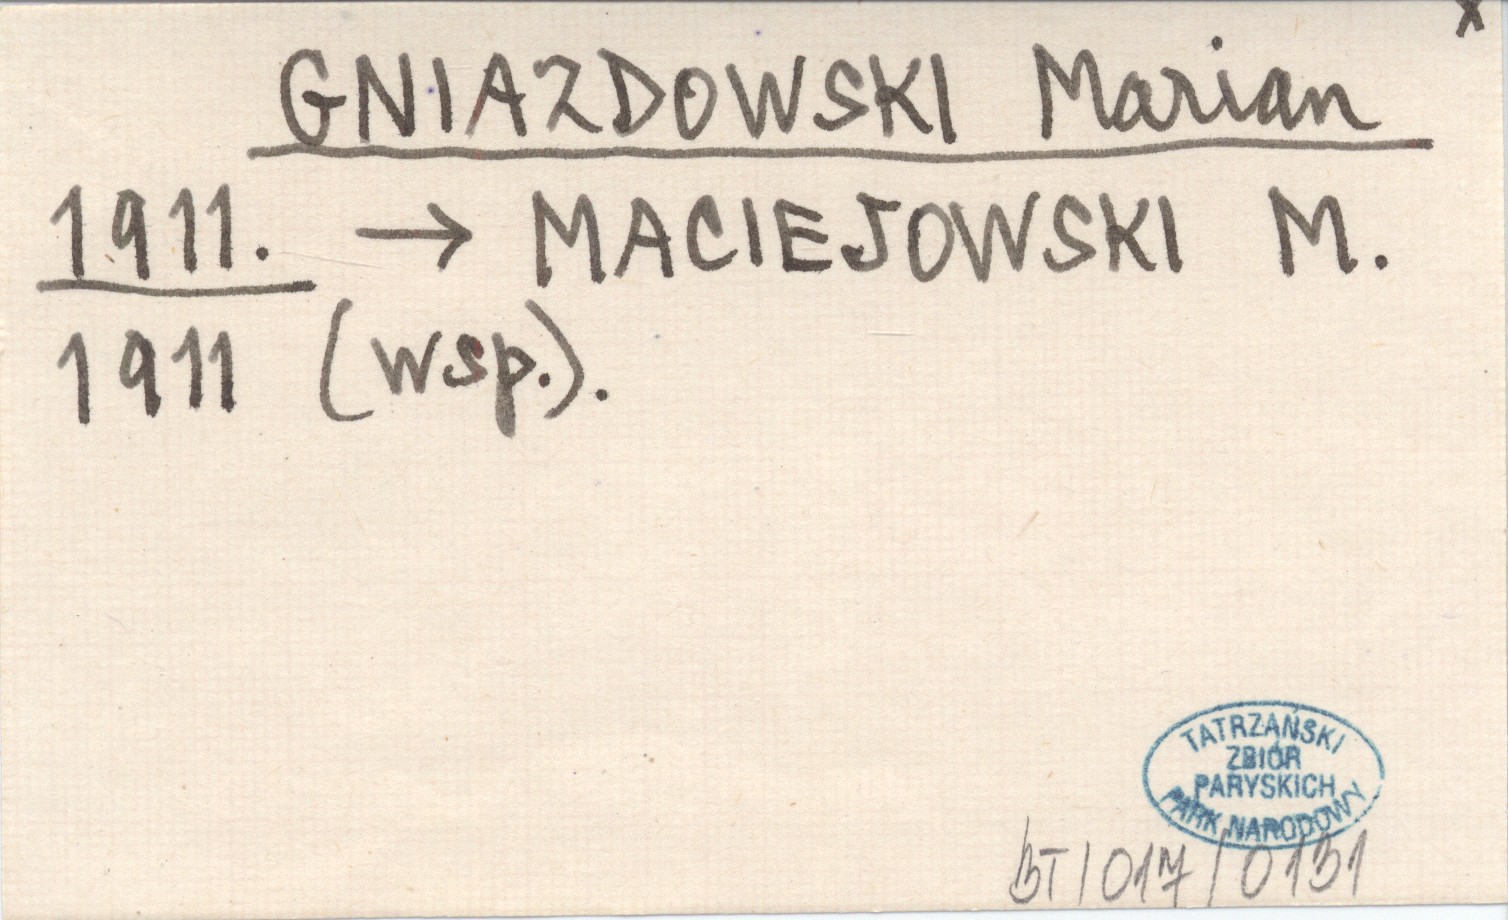 x
GNIAZDOWSKI Marian
1911. → MACIEJOWSKI M.
1911 (wsp.).
TATRZAŃSKI
ZBIÓR
PARYSKICH
PARK NARODOWY
BT/017/0131